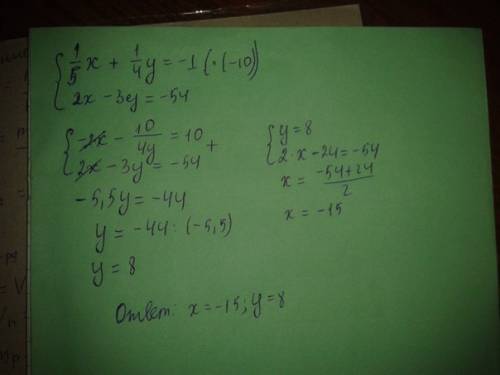 { 1/5 x + 1/4 y = -1 (·(-10))
2x - 3y = -54
{ -2x - 10/4y = 10
2x - 3y = -54 +
-5,5y = -44
y = -44 : (-5,5)
y = 8
{ y = 8
2·x - 24 = -54
x = -54+24/2
x = -15
Ответ: x = -15; y = 8